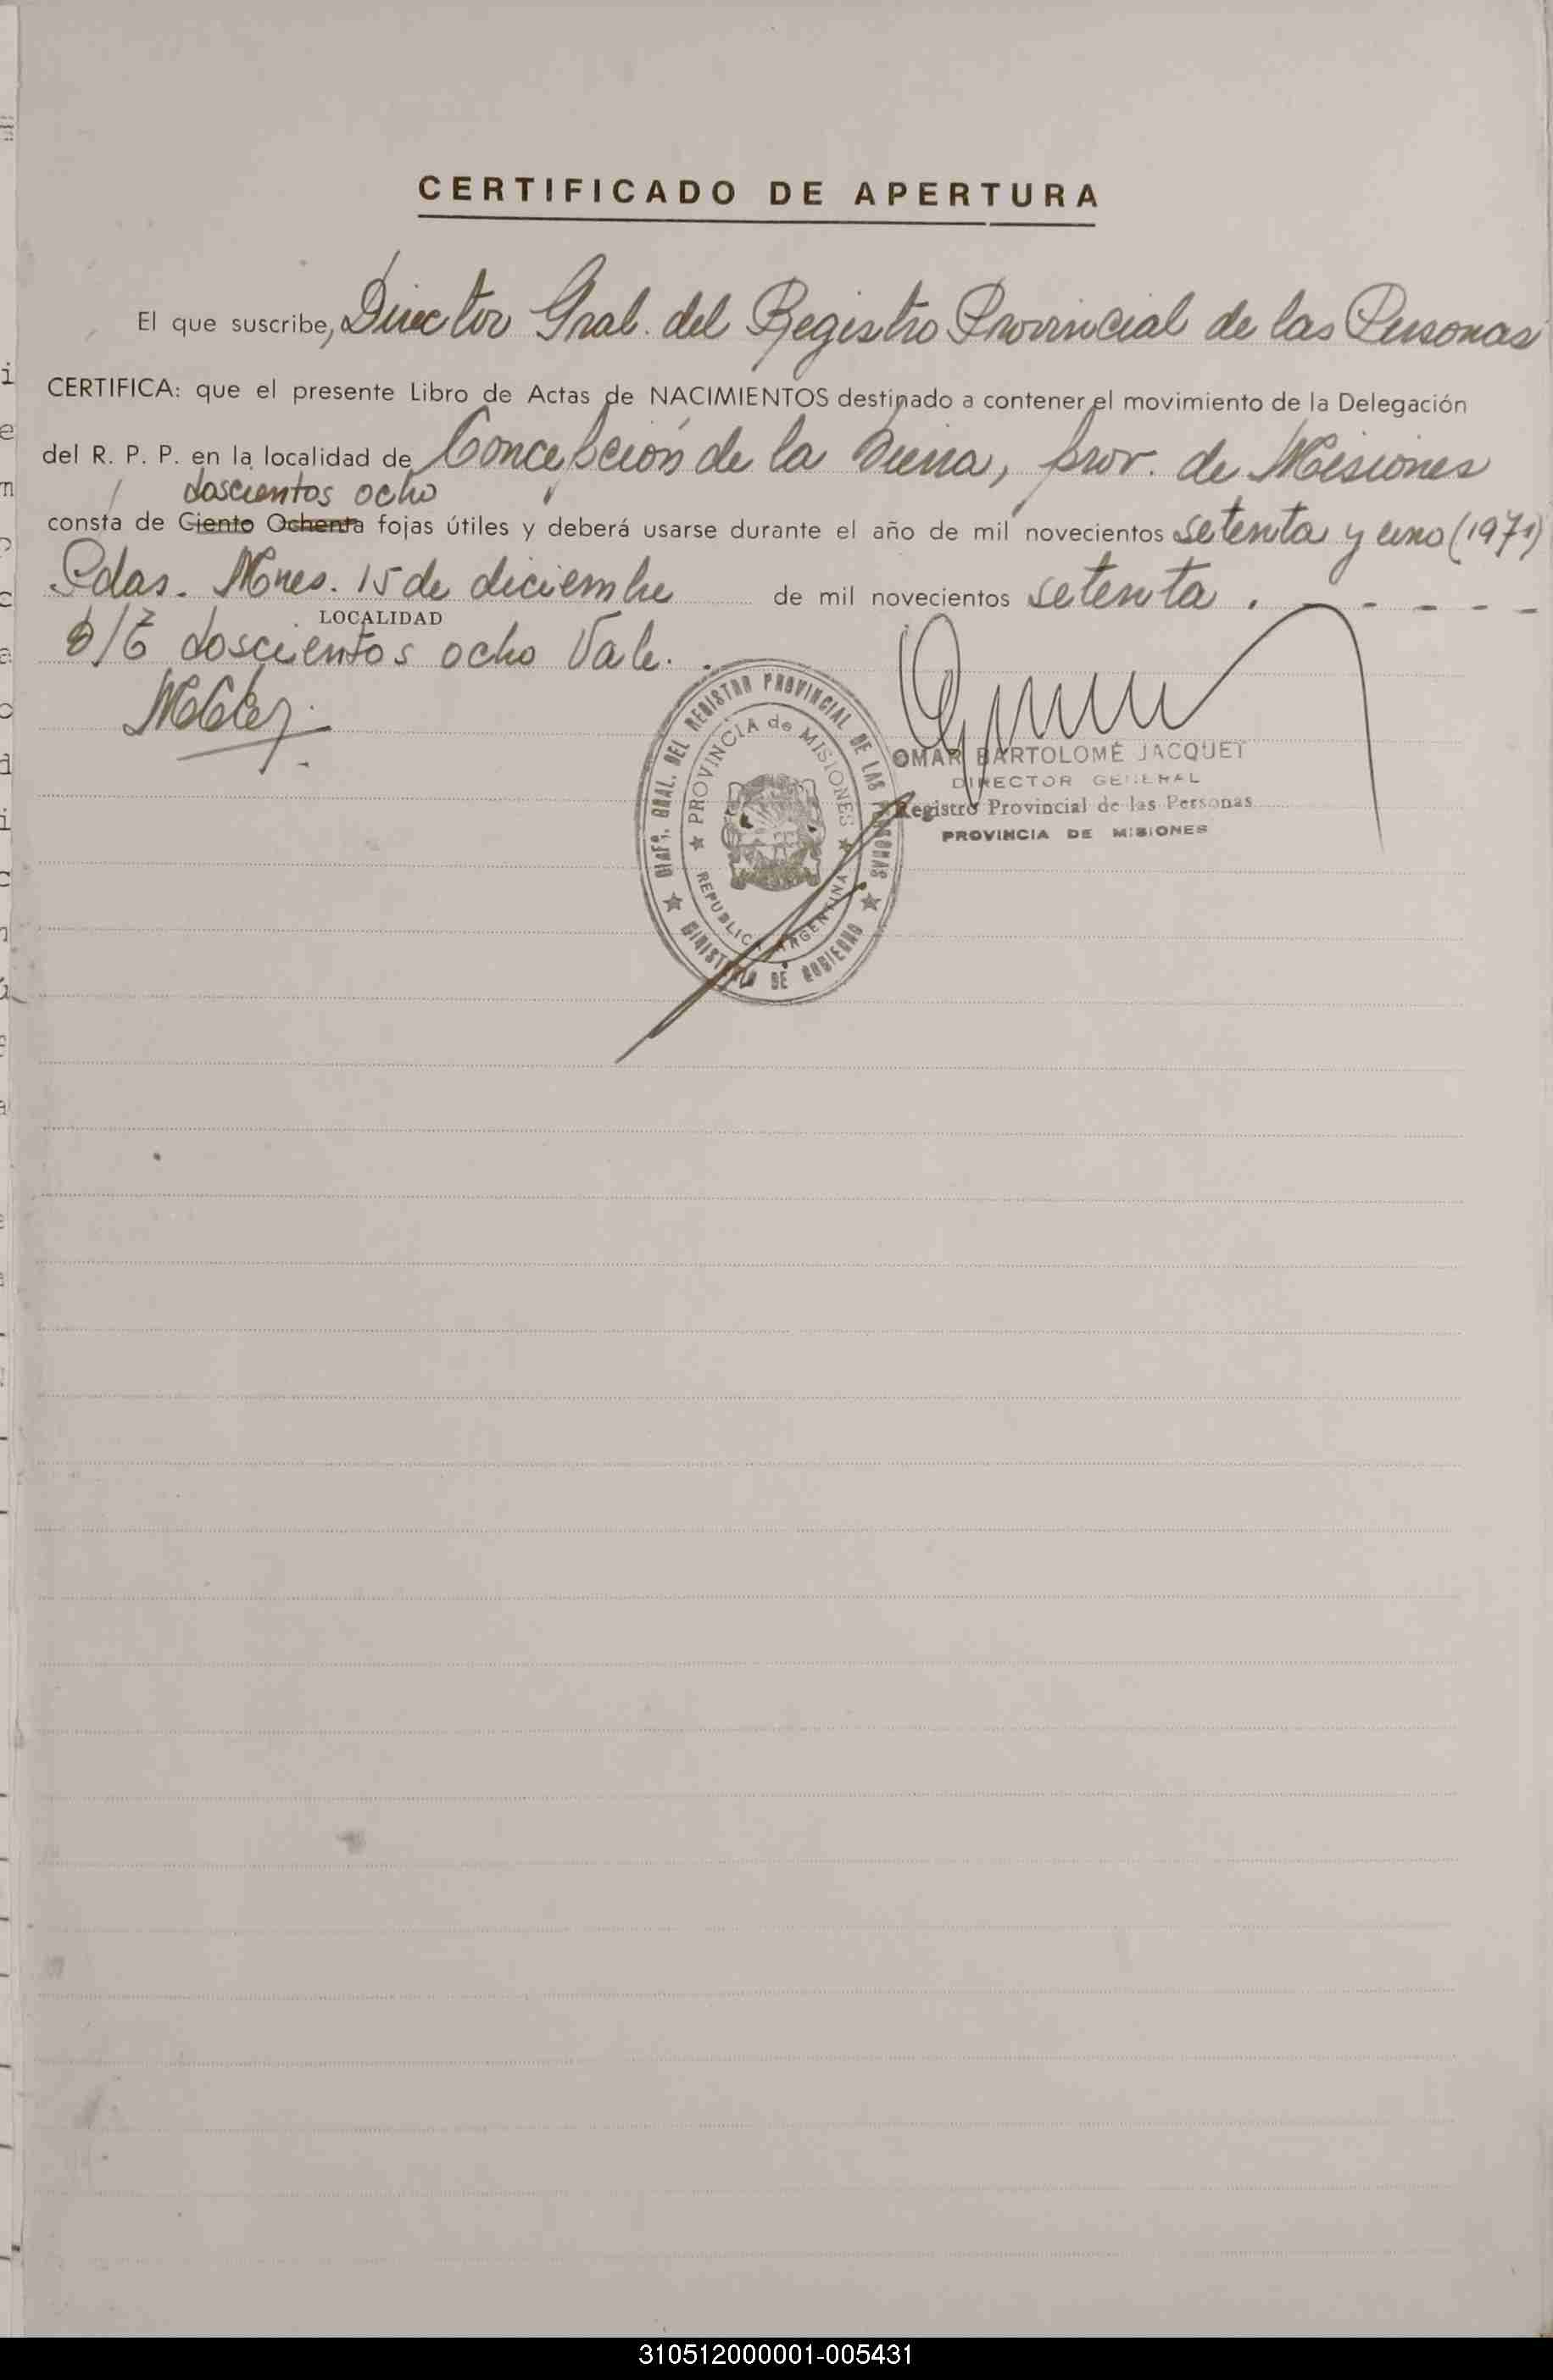 CERTIFICADO DE APERTURA
El que suscribe, Director Gral. del Registro Provincial de las Personas
CERTIFICA: que el presente Libro de Actas de NACIMIENTOS destinado a contener el movimiento de la Delegación
del R. P. P. en la localidad de Concepción de la Sierra, prov. de Misiones
doscientos ocho
consta de Ciento Ochenta fojas útiles y deberá usarse durante el año de mil novecientos setenta y uno (1971)
Pdas. Mnes. 15 de diciembre de mil novecientos setenta . - - - - -
LOCALIDAD
doscientos ocho Vale.
DIREC. GRAL. DEL REGISTRO PROVINCIAL DE LAS PERSONAS
PROVINCIA de MISIONES
REPUBLICA ARGENTINA
MINISTERIO DE GOBIERNO
OMAR BARTOLOMÉ JACQUET
DIRECTOR GENERAL
Registro Provincial de las Personas
PROVINCIA DE MISIONES
310512000001-005431